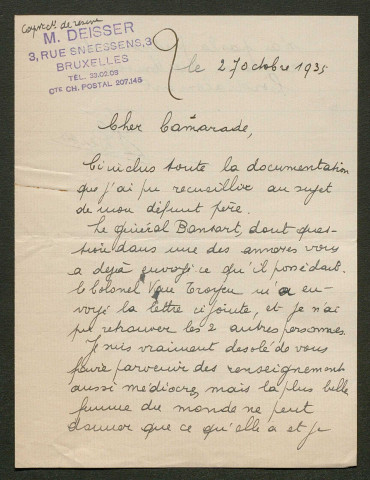 M. DEISSER
3, RUE SNEESSENS, 3
BRUXELLES
TÉL. 33.02.03
CTE CH. POSTAL 207.145
le 27 Octobre 1935
Cher Camarade,
Ci inclus toute la documentation
que j'ai pu recueillir au sujet
de mon défunt père.
Le général Bansart, dont ques-
tion dans une des annexes vous
a déjà envoyé ce qu'il possédait.
le Colonel Van Troyen m'a en-
voyé la lettre ci jointe, et je n'ai
pu retrouver les 2 autres personnes.
Je suis vraiment désolé de vous
faire parvenir des renseignements
aussi médiocres, mais la plus belle
femme du monde ne peut
donner que ce qu'elle a et je